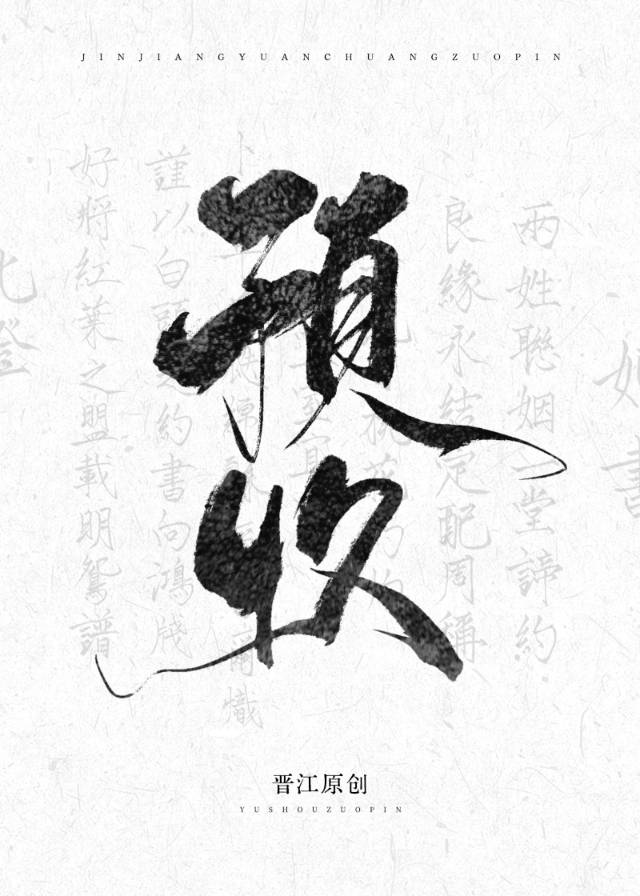 JINJIANGYUANCHUANGZUOPIN
預收
兩姓聯姻一堂諦約
良緣永結定配周稱
謹以白頭之約書向鴻牋
好將紅葉之盟載明鴛譜
晋江原创
YUSHOUZUOPIN